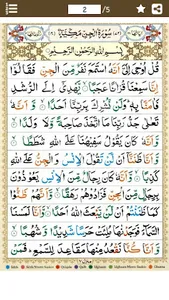 2 /5
سُورَةُ الْجِنِّ مَكِّيَّةٌ
بِسْمِ اللّٰهِ الرَّحْمٰنِ الرَّحِيْمِ
قُلْ اُوْحِيَ اِلَيَّ اَنَّهُ اسْتَمَعَ نَفَرٌ مِّنَ الْجِنِّ فَقَالُوْٓا
اِنَّا سَمِعْنَا قُرْاٰنًا عَجَبًا يَّهْدِيْٓ اِلَى الرُّشْدِ
فَاٰمَنَّا بِهٖ وَلَنْ نُّشْرِكَ بِرَبِّنَآ اَحَدًا وَّاَنَّهٗ
تَعٰلٰى جَدُّ رَبِّنَا مَا اتَّخَذَ صَاحِبَةً وَّلَا وَلَدًا
وَّاَنَّهٗ كَانَ يَقُوْلُ سَفِيْهُنَا عَلَى اللّٰهِ شَطَطًا
وَّاَنَّا ظَنَنَّآ اَنْ لَّنْ تَقُوْلَ الْاِنْسُ وَالْجِنُّ عَلَى اللّٰهِ
كَذِبًا وَّاَنَّهٗ كَانَ رِجَالٌ مِّنَ الْاِنْسِ يَعُوْذُوْنَ
بِرِجَالٍ مِّنَ الْجِنِّ فَزَادُوْهُمْ رَهَقًا وَّاَنَّهُمْ ظَنُّوْا
كَمَا ظَنَنْتُمْ اَنْ لَّنْ يَّبْعَثَ اللّٰهُ اَحَدًا وَّاَنَّا
لَمَسْنَا السَّمَآءَ فَوَجَدْنٰهَا مُلِئَتْ حَرَسًا شَدِيْدًا وَّشُهُبًا
وَّاَنَّا كُنَّا نَقْعُدُ مِنْهَا مَقَاعِدَ لِلسَّمْعِ فَمَنْ